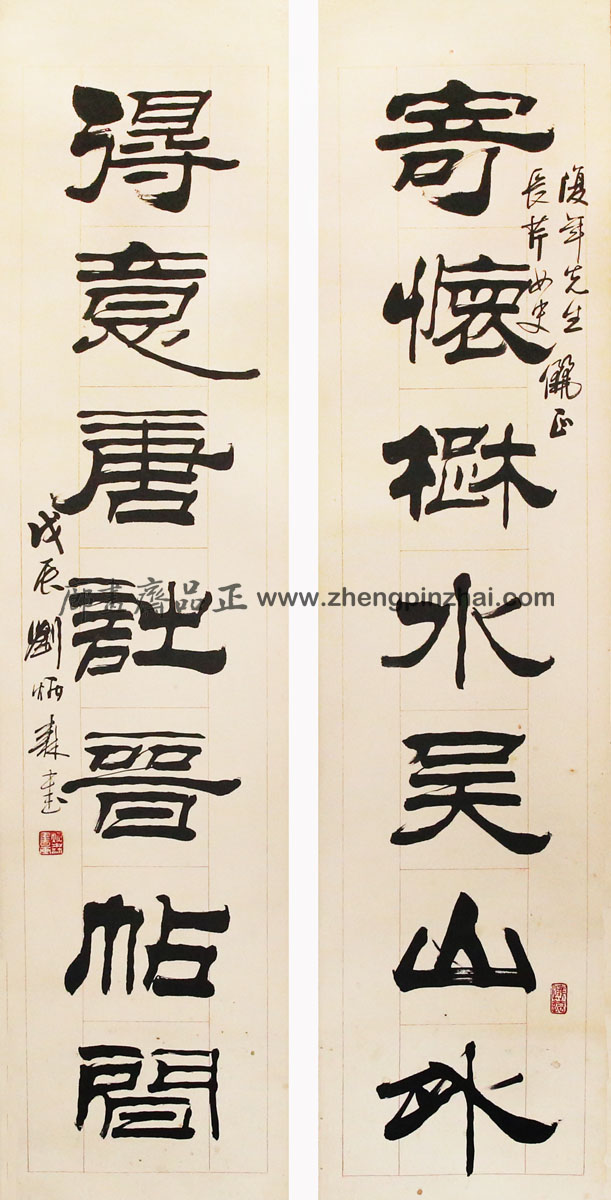 寄懷楚水吳山外
復年先生
長芹女史 儷正
得意唐詩晉帖間
戊辰劉炳森書
正品齋書廊 www.zhengpinzhai.com